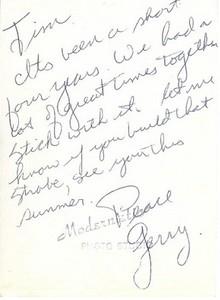 Jim.
Its been a short
four years. We had a
lot of great times together
Stick with it. Let me
know if you build that
Strobe, see you this
summer.
Peace
Modern
PHOTO
Gerry.